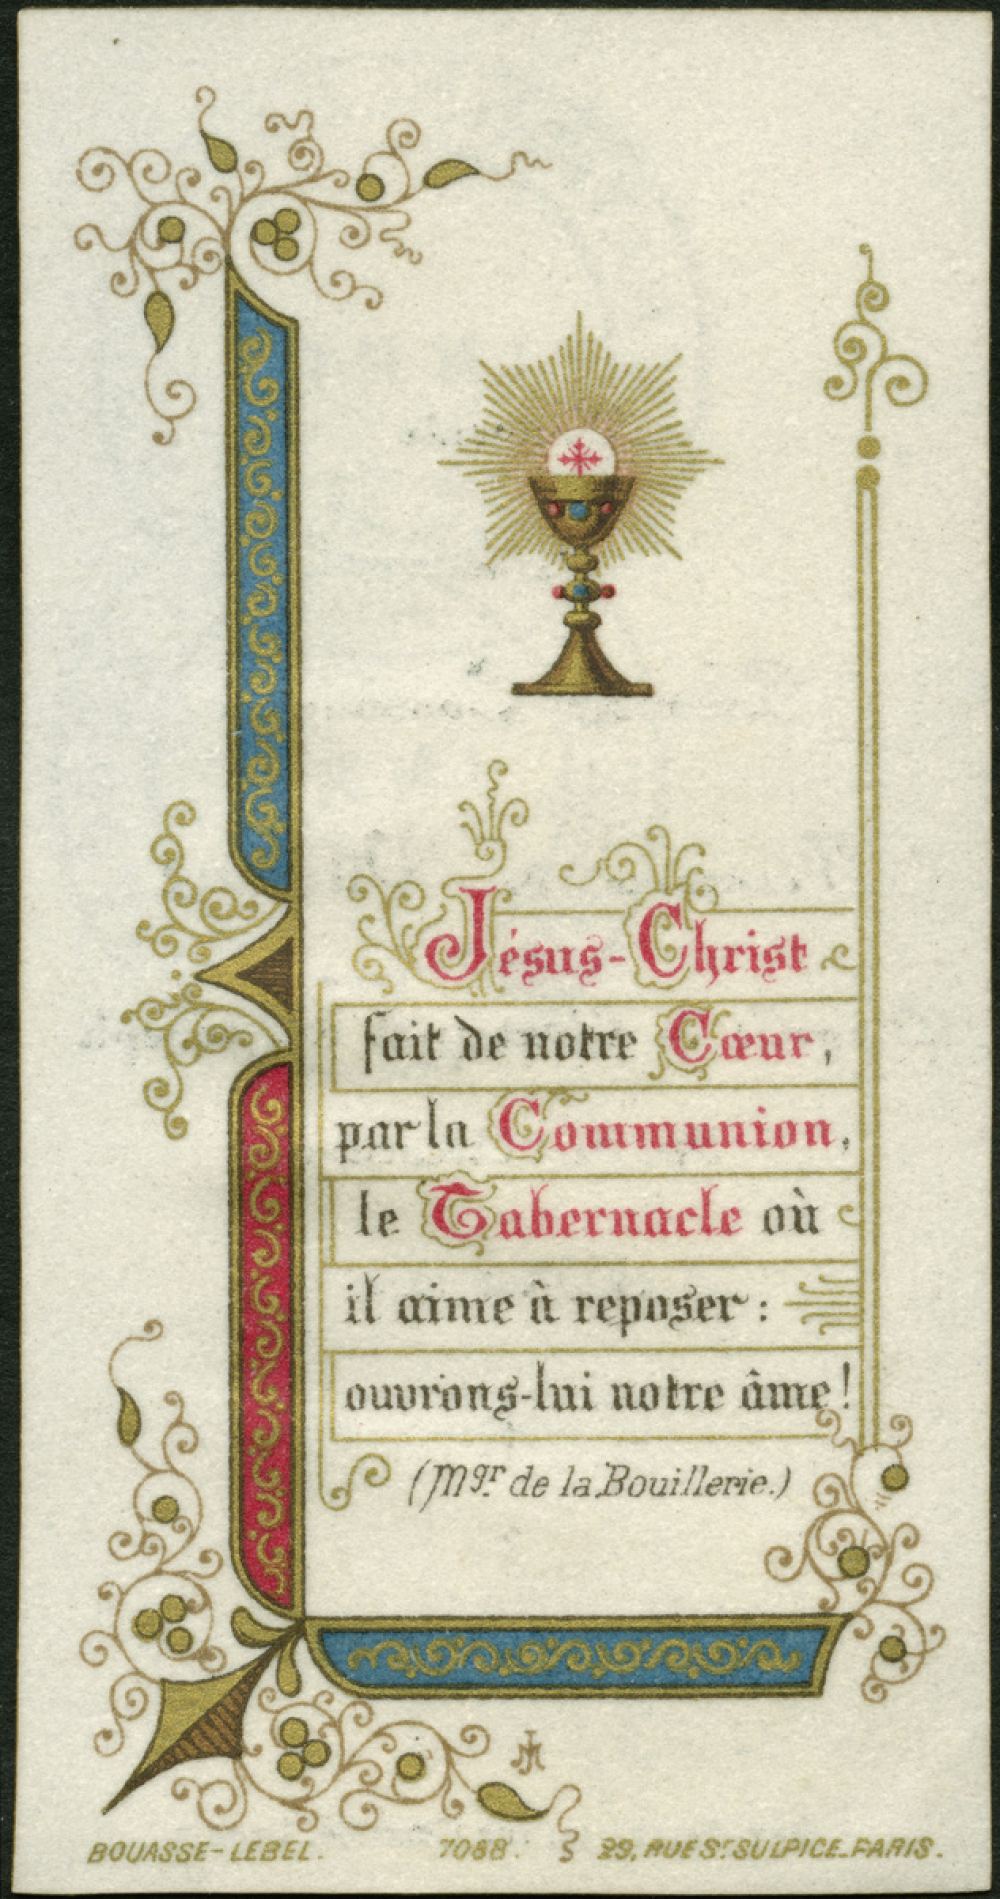 Jésus-Christ
fait de notre Cœur,
par la Communion,
le Tabernacle où
il aime à reposer :
ouvrons-lui notre âme!
(Mgr. de la Bouillerie.)
BOUASSE-LEBEL. 7088. 29, RUE ST SULPICE_PARIS.